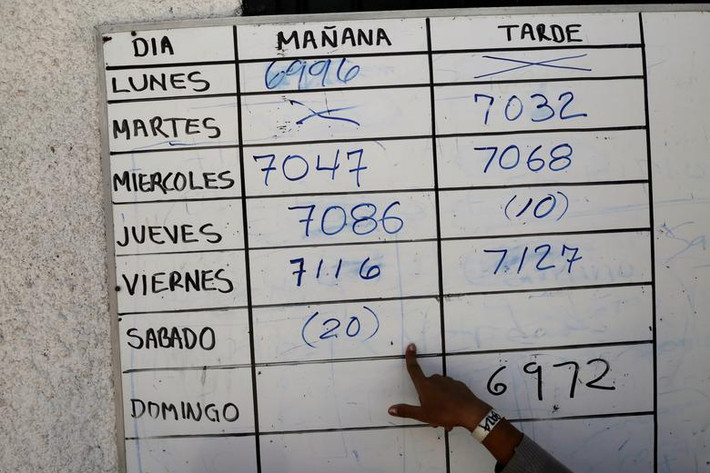 DIA MAÑANA TARDE
LUNES 6996
MARTES 7032
MIERCOLES 7047 7068
JUEVES 7086 (10)
VIERNES 7116 7127
SABADO (20)
DOMINGO 6972